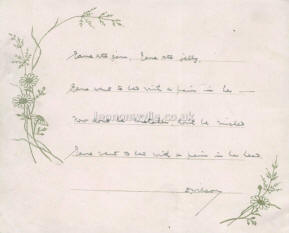 Jane ate jam, Jane ate jelly,
Jane went to bed with a pain in her —
Now don't be mistaken, don't be misled
Jane went to bed with a pain in her head.